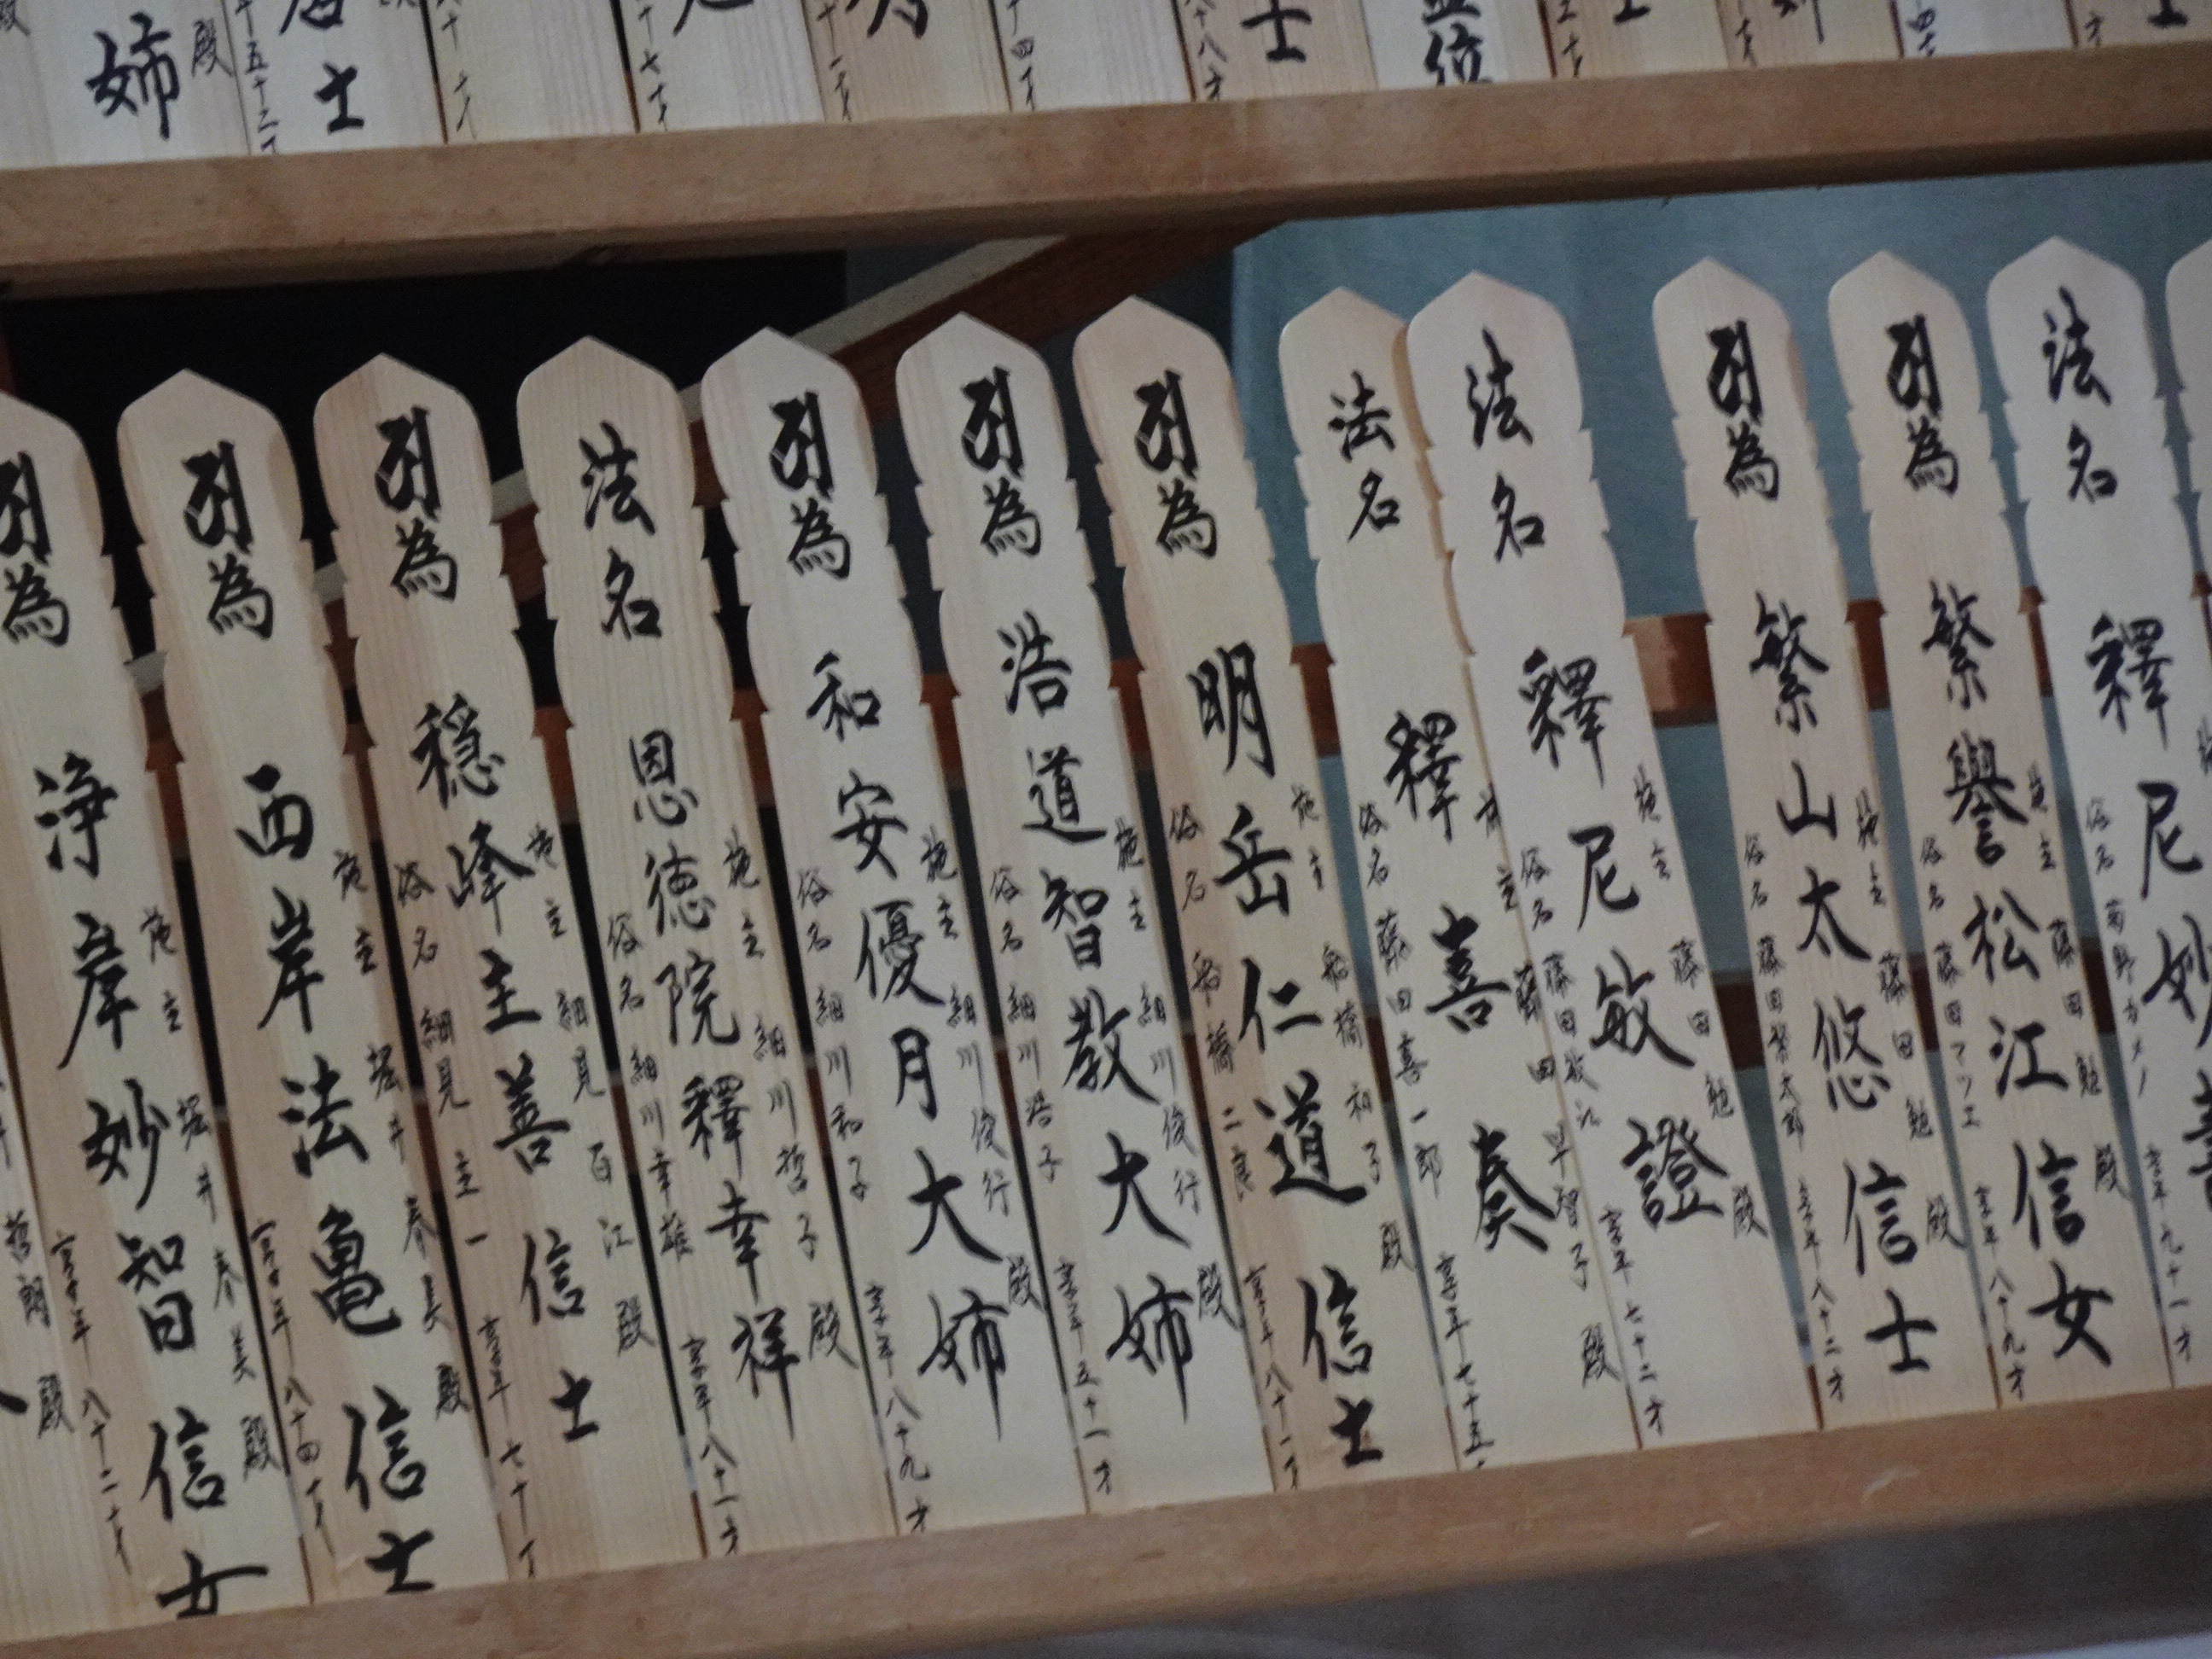 法名 釋尼妙
俗名 菊野カメノ
享年九十一才
為 繁譽松江信女
施主 藤田勉殿
俗名 藤田マツエ
享年八十九才
為 繁山太悠信士
施主 藤田勉殿
俗名 藤田繁太郎
享年八十二才
法名 釋尼敏證
施主 藤田勉殿
俗名 藤田敏江
享年七十二才
法名 釋喜葵
施主 藤田早智子殿
俗名 藤田喜一郎
享年七十五
為 明岳仁道信士
施主 船橋和子殿
俗名 船橋二良
享年八十一才
為 浩道智教大姉
施主 細川俊行殿
俗名 細川浩子
享年五十一才
為 和安優月大姉
施主 細川俊行殿
俗名 細川和子
享年八十九才
法名 恩徳院釋幸祥
施主 細川哲子殿
俗名 細川幸雄
享年八十一才
為 穏峰主善信士
施主 細見百江殿
俗名 細見主一
享年七十才
為 西岸法亀信士
施主 堀井春美殿
享年八十四才
為 浄岸妙智信女
施主 堀井春美殿
享年八十二才
為
哲朗殿
士
位
士
十八才
十四才
十一才
十七才
士
五十三才
姉
殿